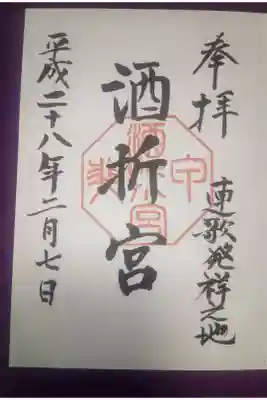 奉拝
連歌発祥之地
酒折宮
平成二十八年二月七日